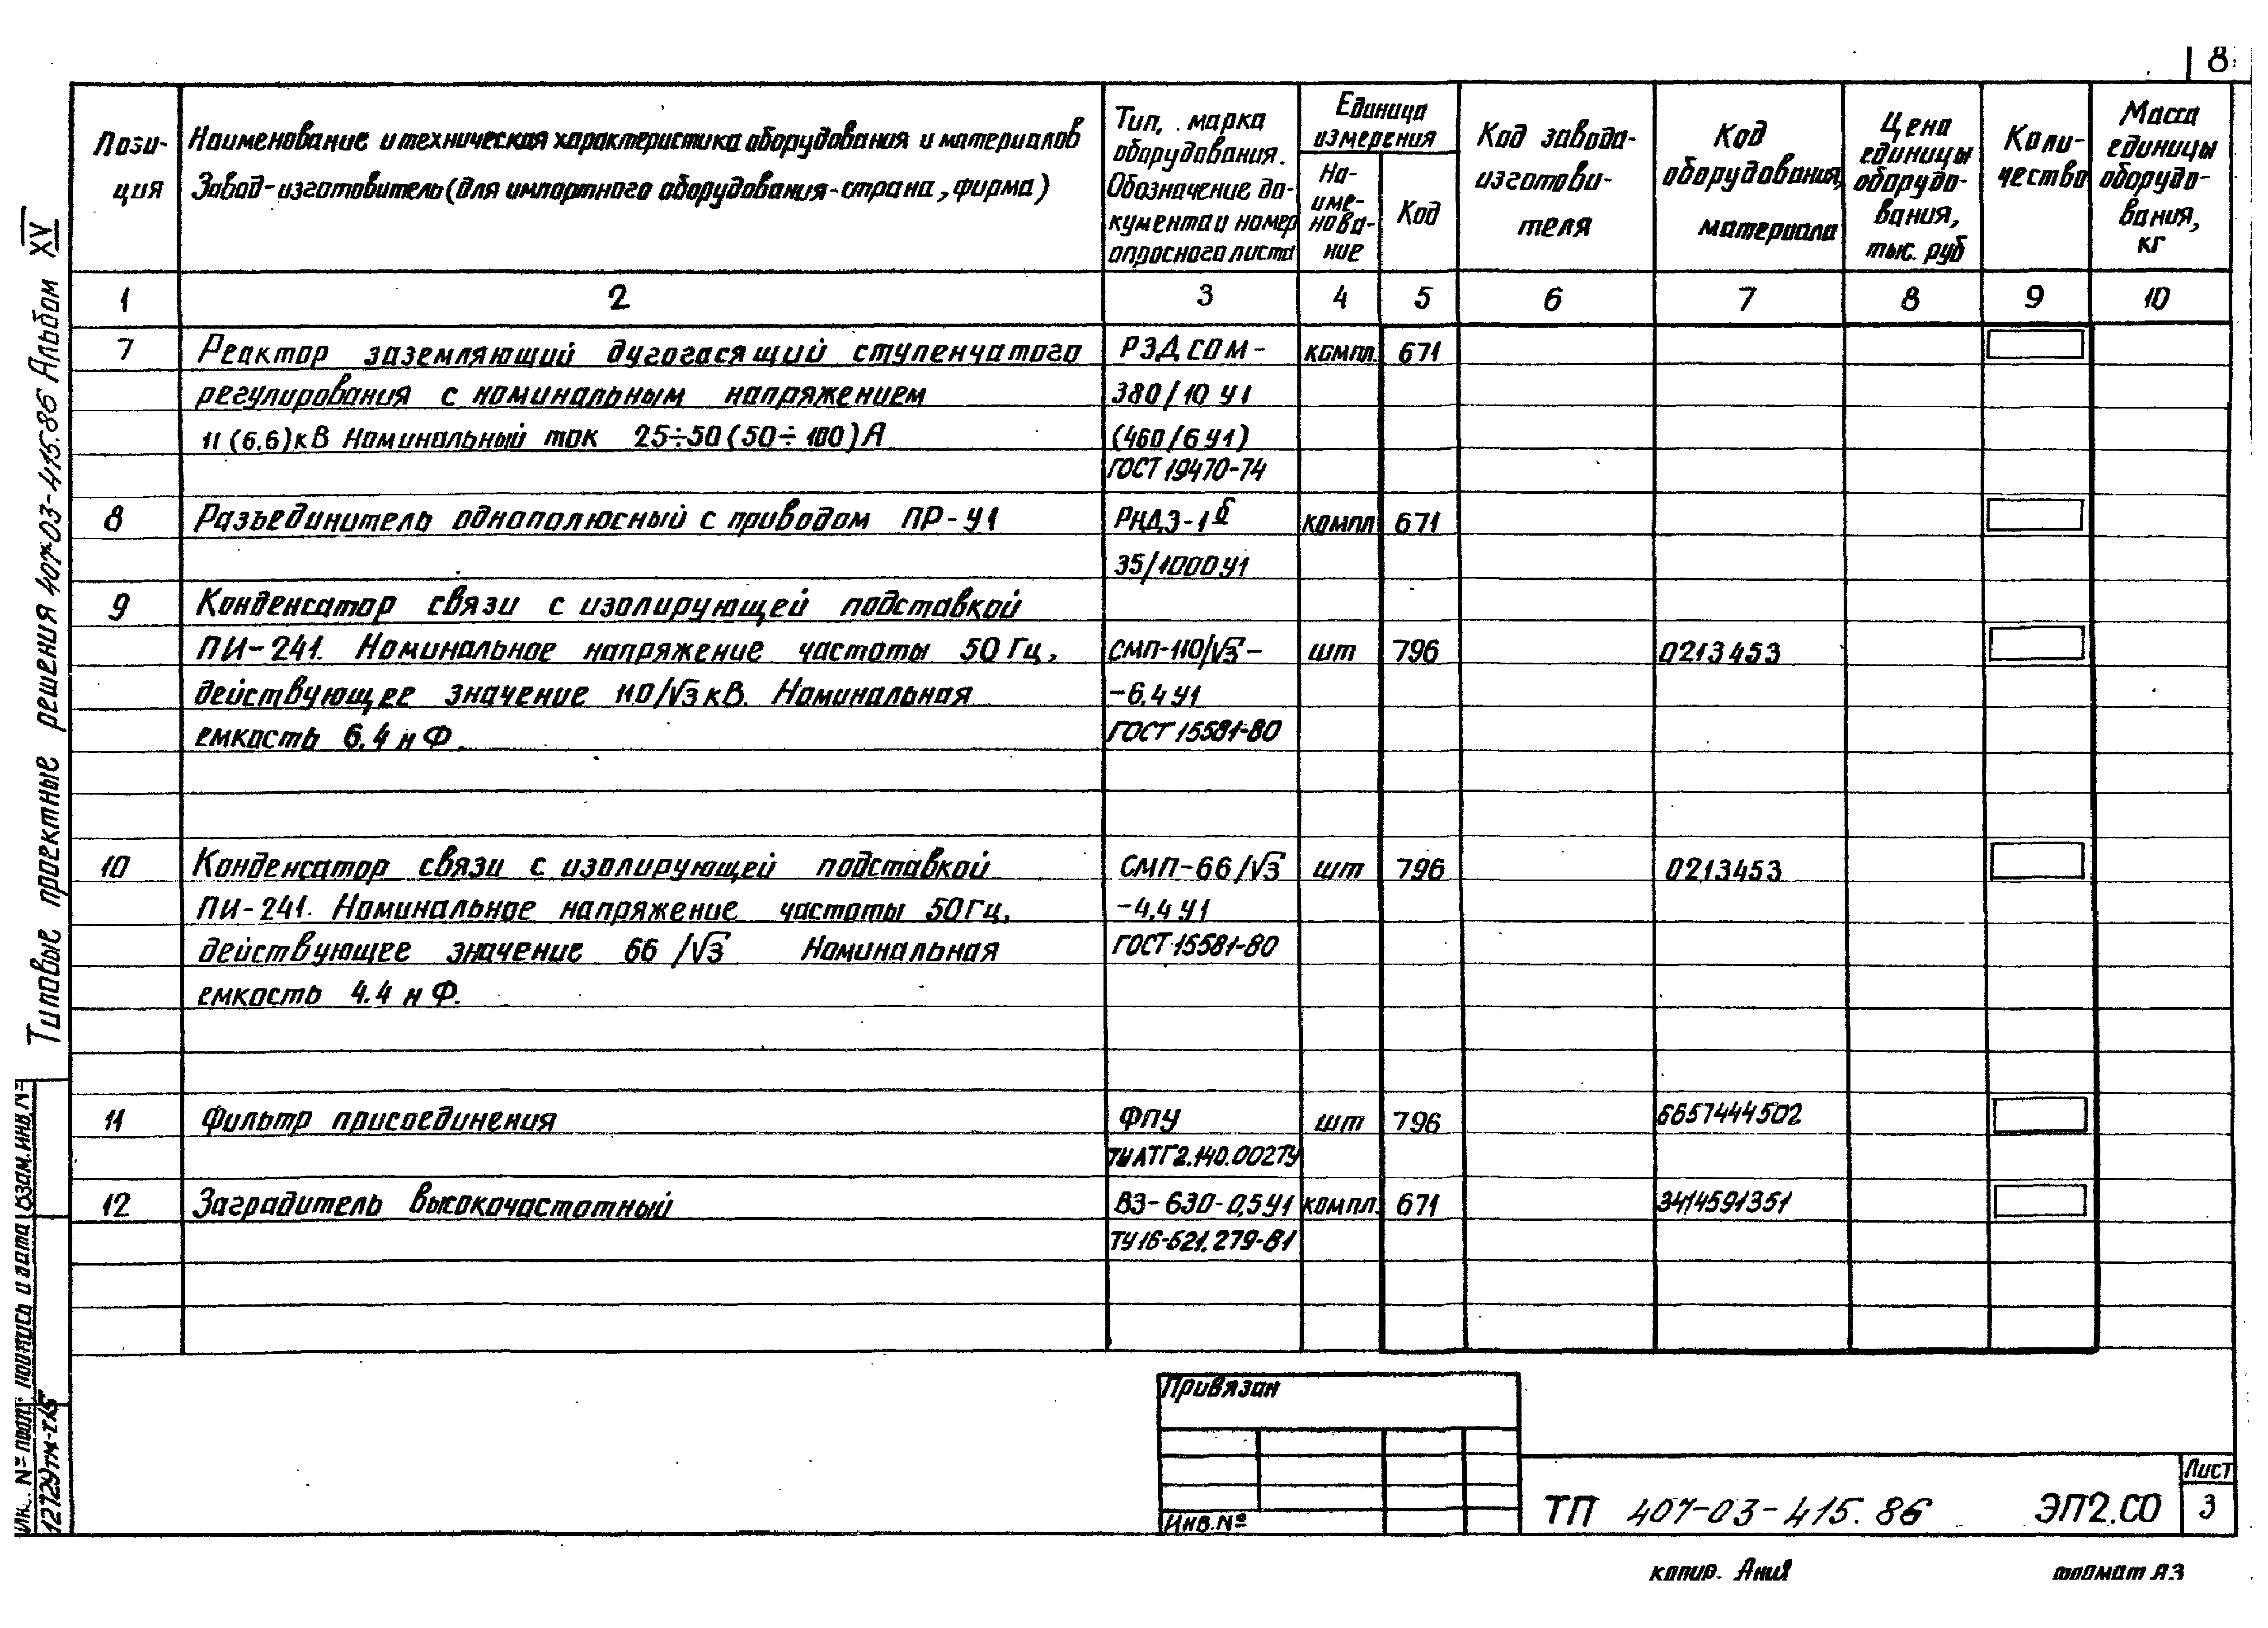 8
Пози-
ция
Наименование и техническая характеристика оборудования и материалов
Завод-изготовитель (для импортного оборудования-страна, фирма)
Тип, марка
оборудования.
Обозначение до-
кумента и номер
опросного листа
Единица
измерения
На-
име-
нова-
ние
Код
Код завода-
изготови-
теля
Код
оборудования,
материала
Цена
единицы
оборудо-
вания,
тыс. руб
Коли-
чество
Масса
единицы
оборудо-
вания,
кг
1 2 3 4 5 6 7 8 9 10
7 Реактор заземляющий дугогасящий ступенчатого РЗДСОМ- компл. 671
регулирования с номинальным напряжением 380/10 У1
11 (6.6)кВ Номинальный ток 25÷50 (50÷100)А (460/6 У1)
ГОСТ 19470-74
8 Разъединитель однополюсный с приводом ПР-У1 РНДЗ-1б компл 671
35/1000 У1
9 Конденсатор связи с изолирующей подставкой
ПИ-241. Номинальное напряжение частоты 50 Гц, СМП-110/√3- шт 796 0213453
действующее значение 110/√3 кВ. Номинальная -6,4 У1
емкость 6.4 нФ. ГОСТ 15581-80
10 Конденсатор связи с изолирующей подставкой СМП-66/√3 шт 796 0213453
ПИ-241. Номинальное напряжение частоты 50Гц, -4,4 У1
действующее значение 66 /√3 Номинальная ГОСТ 15581-80
емкость 4.4 нФ.
11 Фильтр присоединения ФПУ шт 796 6657444502
ТУ АТГ2.140.002ТУ
12 Заградитель высокочастотный ВЗ-630-0,5 У1 компл. 671 3414591351
ТУ16-521.279-81
Типовые проектные решения 407-03-415.86 Альбом XV
Взам.инв.№
Подпись и дата
Инв. № подл.
12729тм-т.15
Привязан
Инв.№
ТП 407-03-415.86 ЭП2.СО
Лист
3
копир. Ания
формат А3